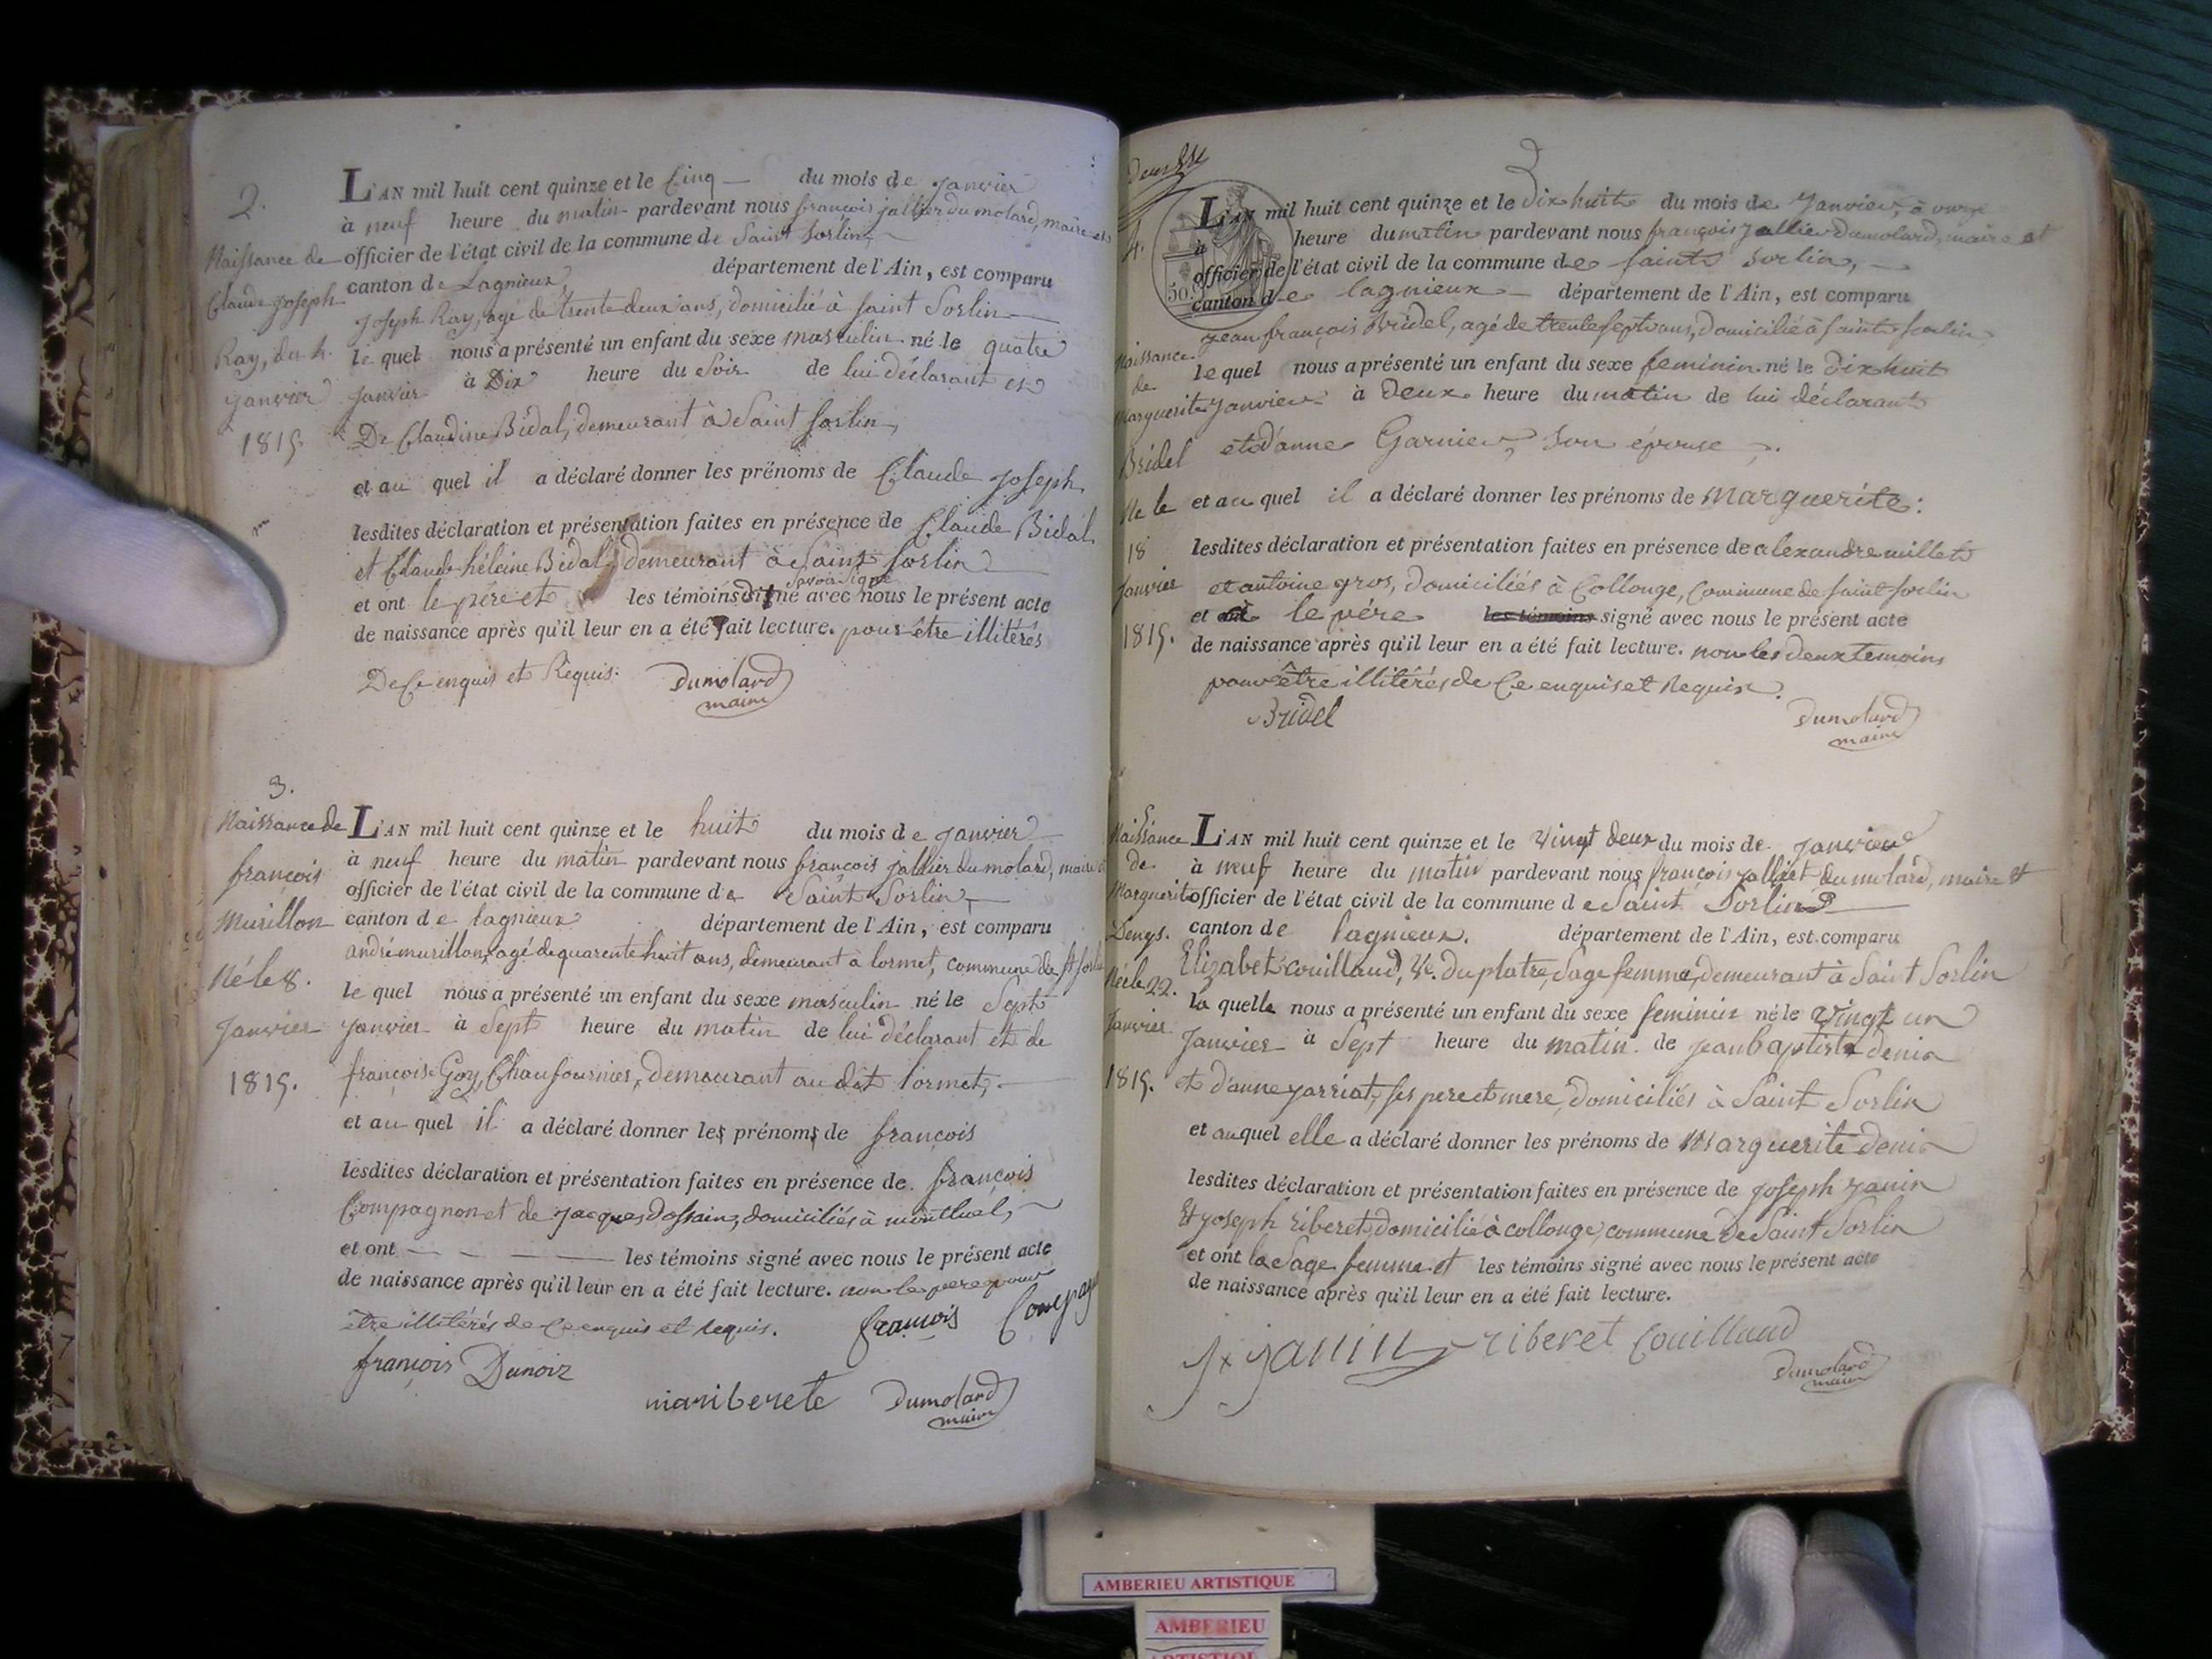 2.
Naissance de
Claude Joseph
Ray, du 4.
janvier
1815.
L'AN mil huit cent quinze et le Cinq — du mois de janvier
à neuf heure du matin pardevant nous françois jallier dumolard, maire et
officier de l'état civil de la commune de Saint Sorlin
canton de Lagnieux, département de l'Ain, est comparu
Joseph Ray, agé de trente deux ans, domicilié à Saint Sorlin
le quel nous a présenté un enfant du sexe masculin né le quatre
janvier à Dix heure du Soir de lui déclarant et
De Claudine Bidal, demeurant à Saint Sorlin,
et au quel il a déclaré donner les prénoms de Claude Joseph
lesdites déclaration et présentation faites en présence de Claude Bidal
et Claude héleine Bidal, demeurant à Saint Sorlin
et ont le père et les témoins dit savoir signé avec nous le présent acte
de naissance après qu'il leur en a été fait lecture. pour être illitérés
De Ce enquis et Requis. Dumolard
maire
3.
Naissance de
françois
Murillon
Né le 8.
Janvier
1815.
L'AN mil huit cent quinze et le huit du mois de janvier
à neuf heure du matin pardevant nous françois jallier dumolard, maire et
officier de l'état civil de la commune de Saint Sorlin
canton de lagnieux département de l'Ain, est comparu
andré murillon, agé de quarente huit ans, demeurant à lormet, commune de St Sorlin
le quel nous a présenté un enfant du sexe masculin né le Sept
janvier à Sept heure du matin de lui déclarant et de
françoise Goy, Chaufournier, demeurant au dit lormet,
et au quel il a déclaré donner les prénoms de françois
lesdites déclaration et présentation faites en présence de françois
Compagnon et de jacques dossain, domiciliés à montluel,
et ont — — — les témoins signé avec nous le présent acte
de naissance après qu'il leur en a été fait lecture. non le pere pour
être illitérés de Ce enquis et Requis. françois Compag
françois Dunoiz
mariberete Dumolard
maire
3
4.
Naissance
de
Marguerite
Bridel
Né le
18
Janvier
1815.
L'AN mil huit cent quinze et le Dix huit du mois de Janvier, à onze
à heure du matin pardevant nous françois jallier Dumolard, maire et
officier de l'état civil de la commune de Saint Sorlin,
canton de lagnieux — département de l'Ain, est comparu
jean françois Bridel, agé de trente sept ans, domicilié à Saint Sorlin
le quel nous a présenté un enfant du sexe feminin né le Dix huit
Janvier à Deux heure du matin de lui déclarant
et d'anne Garnier, son épouse,
et au quel il a déclaré donner les prénoms de Marguerite:
lesdites déclaration et présentation faites en présence de alexandre millet
et antoine gros, domiciliés à Collonge, Commune de Saint Sorlin
et le père les témoins signé avec nous le présent acte
de naissance après qu'il leur en a été fait lecture. non les deux temoins
pour être illitérés de Ce enquis et Requis.
Bridel Dumolard
maire
Naissance
de
Marguerite
Denys.
Née le 22.
Janvier
1815.
L'AN mil huit cent quinze et le Vingt deux du mois de janvier
à neuf heure du matin pardevant nous françois jalliet dumolard, maire et
officier de l'état civil de la commune de Saint Sorlin
canton de lagnieux. département de l'Ain, est comparu
Elizabet couillaud, Ve. duplatre, Sage femme, demeurant à Saint Sorlin
la quelle nous a présenté un enfant du sexe feminin né le Vingt un
Janvier à Sept heure du matin de jean baptiste denia
et d'anne jarriat, ses pere et mere, domiciliés à Saint Sorlin
et au quel elle a déclaré donner les prénoms de Marguerite denia
lesdites déclaration et présentation faites en présence de joseph janin
Et joseph riberet, domicilié à collonge, commune de Saint Sorlin
et ont la Sage femme et les témoins signé avec nous le présent acte
de naissance après qu'il leur en a été fait lecture.
Jx janin riberet Couillaud
Dumolard
maire
AMBERIEU ARTISTIQUE
AMBERIEU
ARTISTIQUE